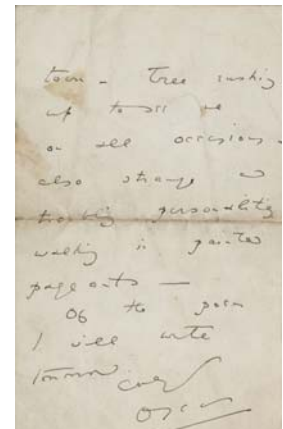 town - Tree rushing
up to see me
on all occasions -
also strange
personality
walking in painted
pageants —
Of the poem
I will write
tomorrow
Oscar